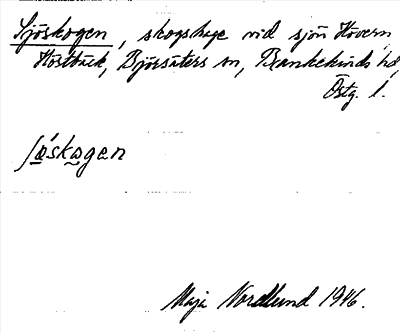 Sjöskogen, skogshage vid sjön Hövern,
Höstbäck, Björsäters sn, Bankekinds hd,
Östg. l.
Maja Nordlund 1946.